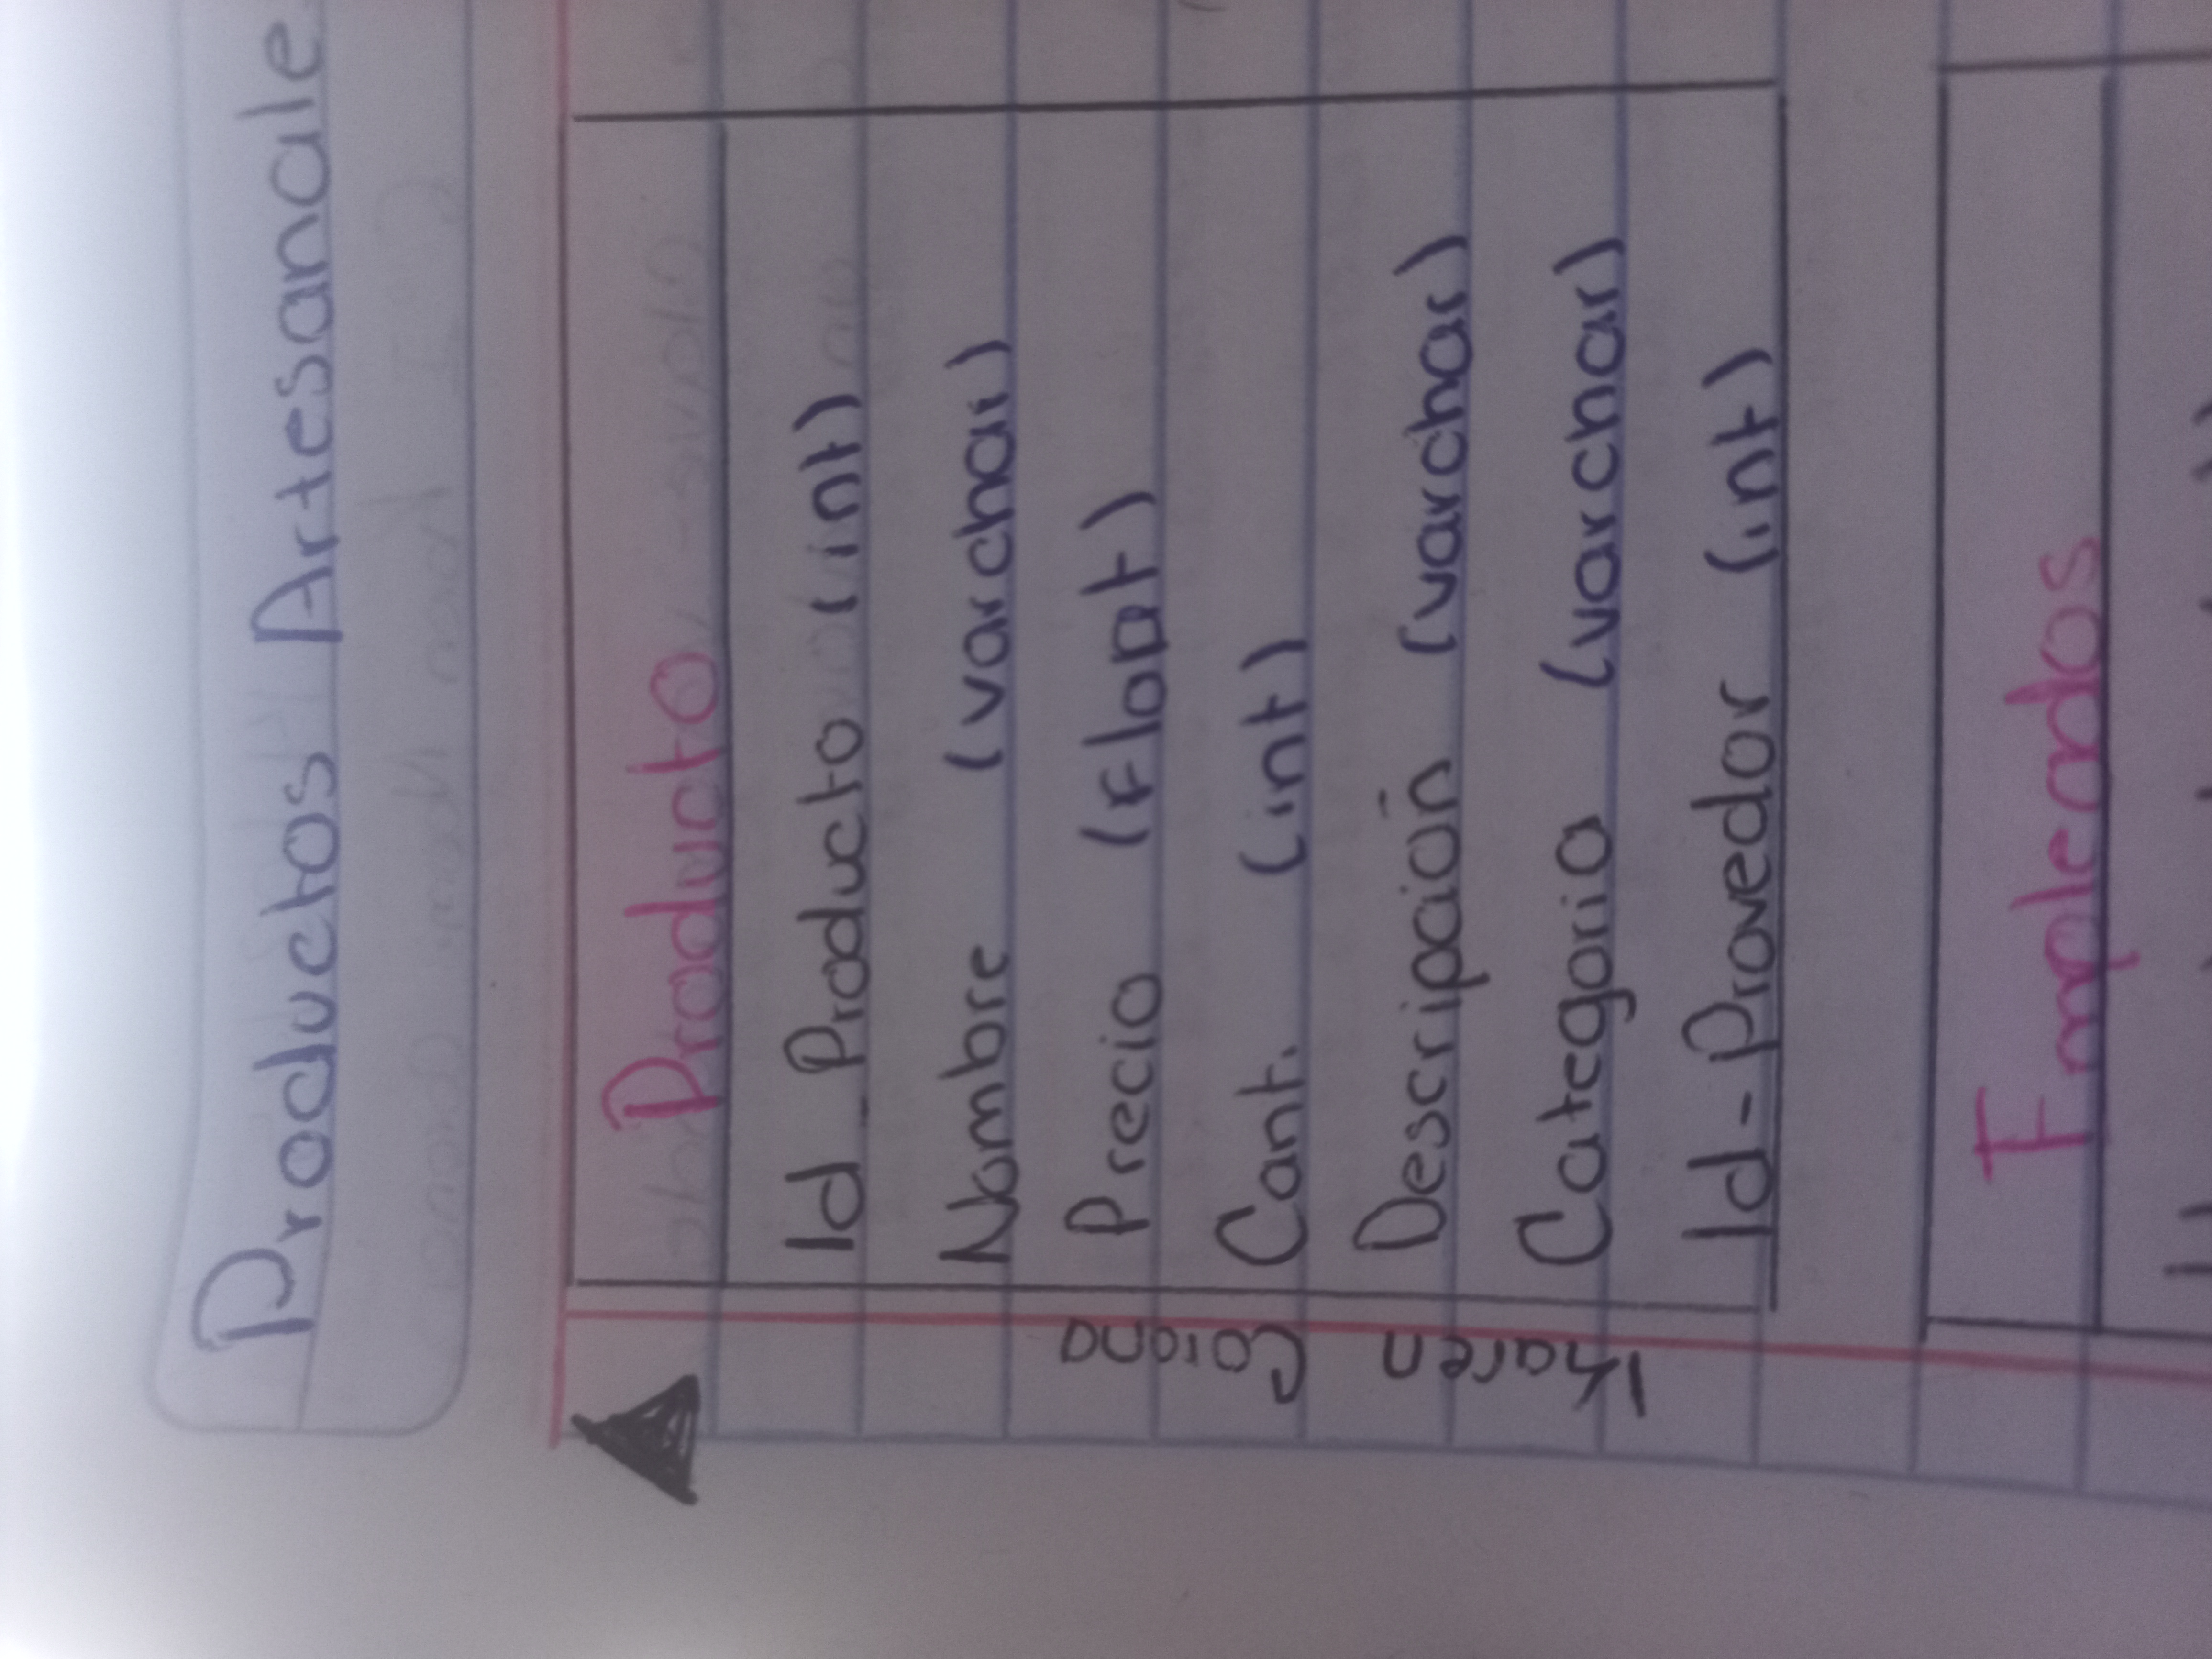 Productos Artesanale
Producto
Id_Producto (int)
Nombre (varchar)
Precio (Float)
Cant. (int)
Descripcioñ (varchar)
Categoria (varchar)
Id-Provedor (int)
Kharen Corona
Empleados